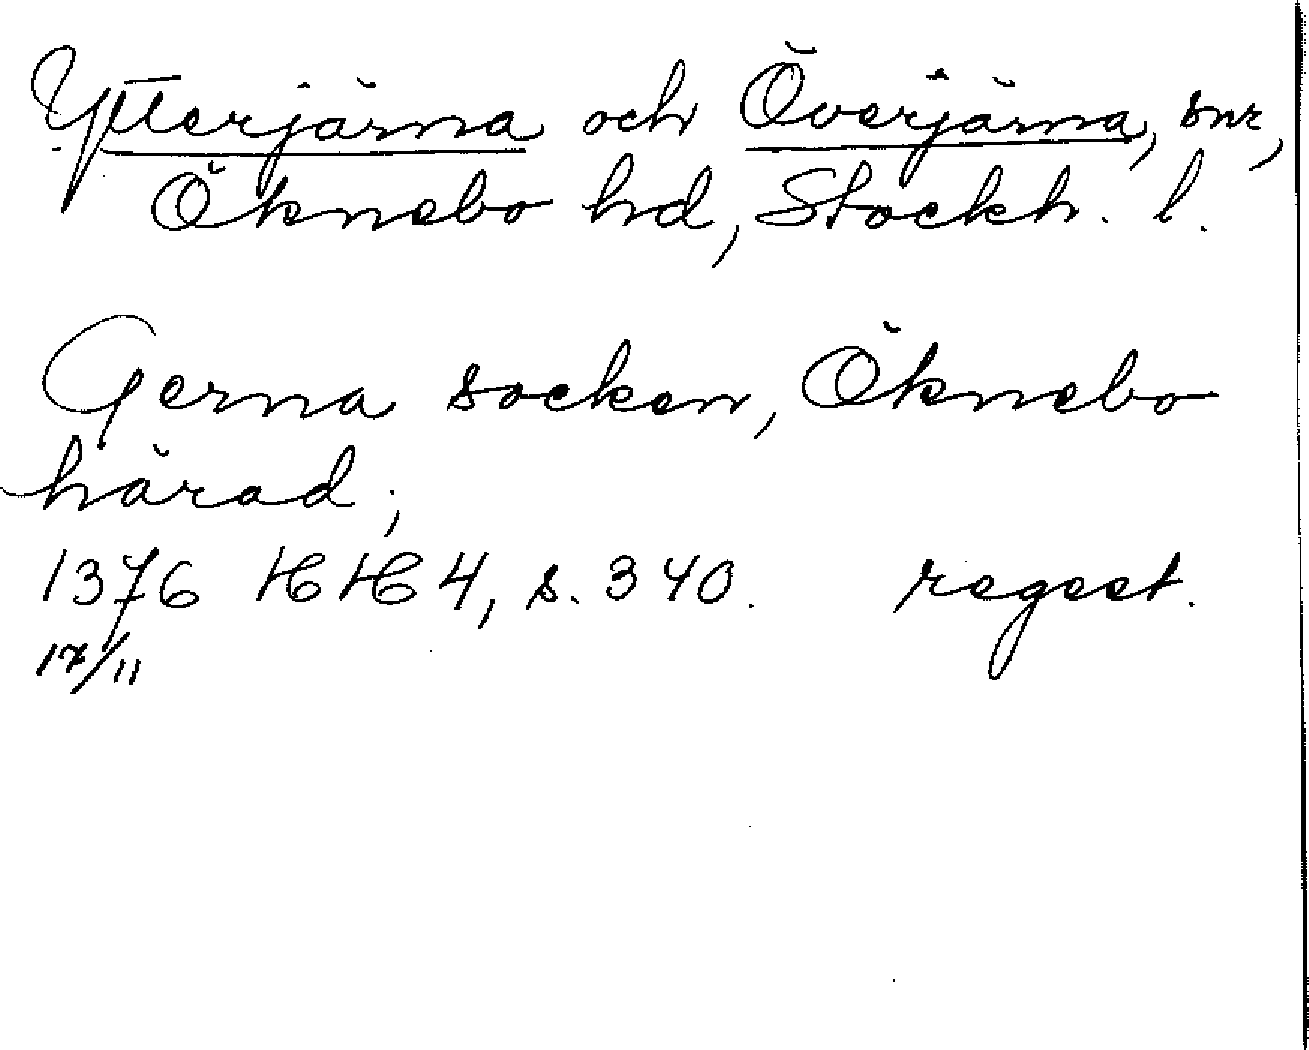 Ytterjärna och Överjärna, snr,
Öknebo hd, Stockh. l.
Gerna socken, Öknebo
härad;
1376 HH 4, s. 340. regest.
17/11